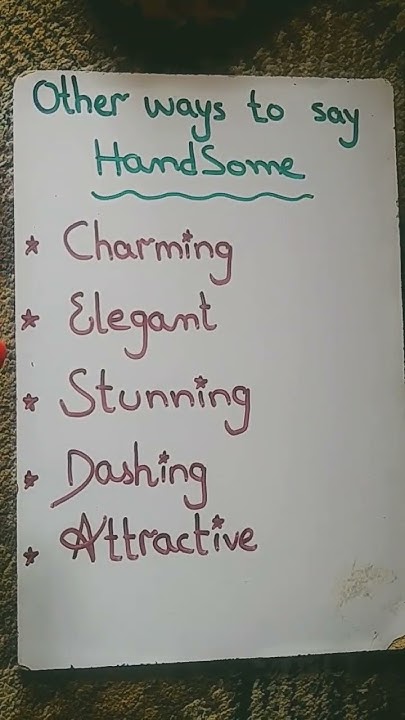 Other ways to say
HandSome
* Charming
* Elegant
* Stunning
* Dashing
* Attractive